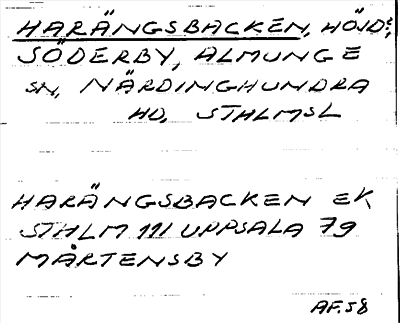 HARÄNGSBACKEN, HÖJD;
SÖDERBY, ALMUNGE
SN, NÄRDINGHUNDRA
HD, STHLMSL
HARÄNGSBACKEN EK
STHLM 111 UPPSALA 79
MÅRTENSBY
AF.58